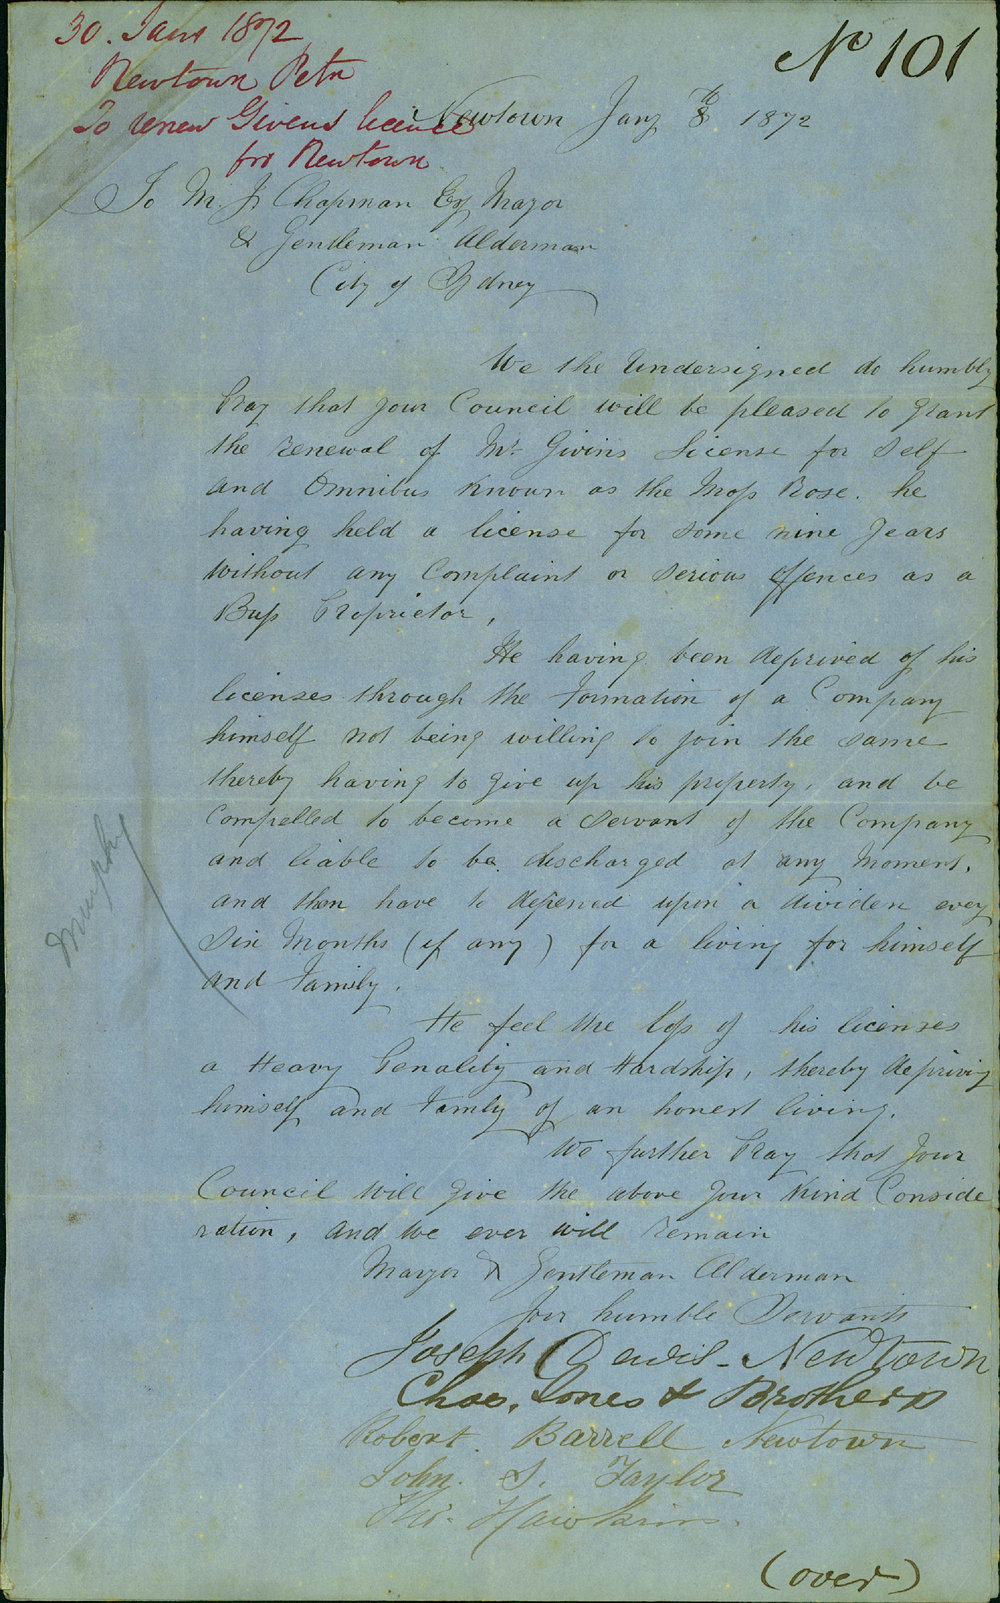 30. Jany 1872
Newtown Petn
To renew Givens licence
for Newtown
No 101
Newtown Jany 8th 1872
To M. J. Chapman Esq Mayor
& Gentleman Alderman
City of Sydney
We the Undersigned do humbly
Pray that your Council will be pleased to grant
the renewal of Mr Givins License for Self
and Omnibus Known as the Moss Rose. he
having held a license for some nine years
without any Complaint or serious offences as a
Buss Proprietor,
He having been deprived of his
licenses through the Formation of a Company
himself not being willing to join the same
thereby having to give up his property, and be
Compelled to become a Servant of the Company
and liable to be discharged at any moment,
and then have to depened upon a dividen every
Six Months (if any) for a living for himself
and Family.
He feel the loss of his licenses
a Heavy Penality and Hardship, thereby depriving
himself and Family of an honest living.
We further Pray that Your
Council will give the above your Kind Conside
ration, and we ever will remain
Mayor & Gentleman Alderman
your humble Servants
Joseph Dewis - Newtown
Chas. Jones & Brothers
Robert Barrell Newtown
John. S. Taylor
Thos. Hawkins.
(over)
Murphy